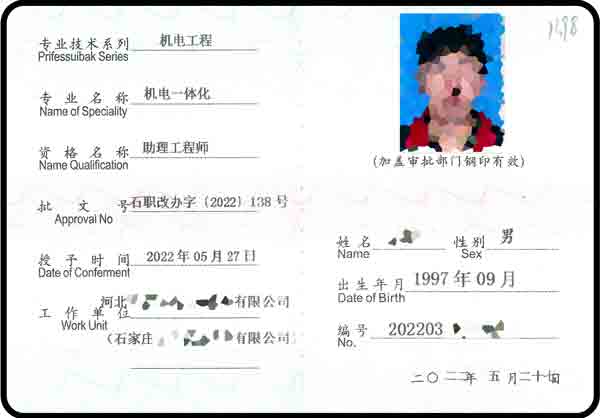 专业技术系列 机电工程
Prifessuibak Series
专业名称 机电一体化
Name of Speciality
资格名称 助理工程师
Name Qualification
批文号 石职改办字〔2022〕138号
Approval No
授予时间 2022年05月27日
Date of Conferment
河北 有限公司
工作单位
Work Unit
(石家庄 有限公司
1498
(加盖审批部门钢印有效)
姓名 性别 男
Name Sex
出生年月 1997年09月
Date of Birth
编号 202203
No.
二〇二二年 五 月二十七日